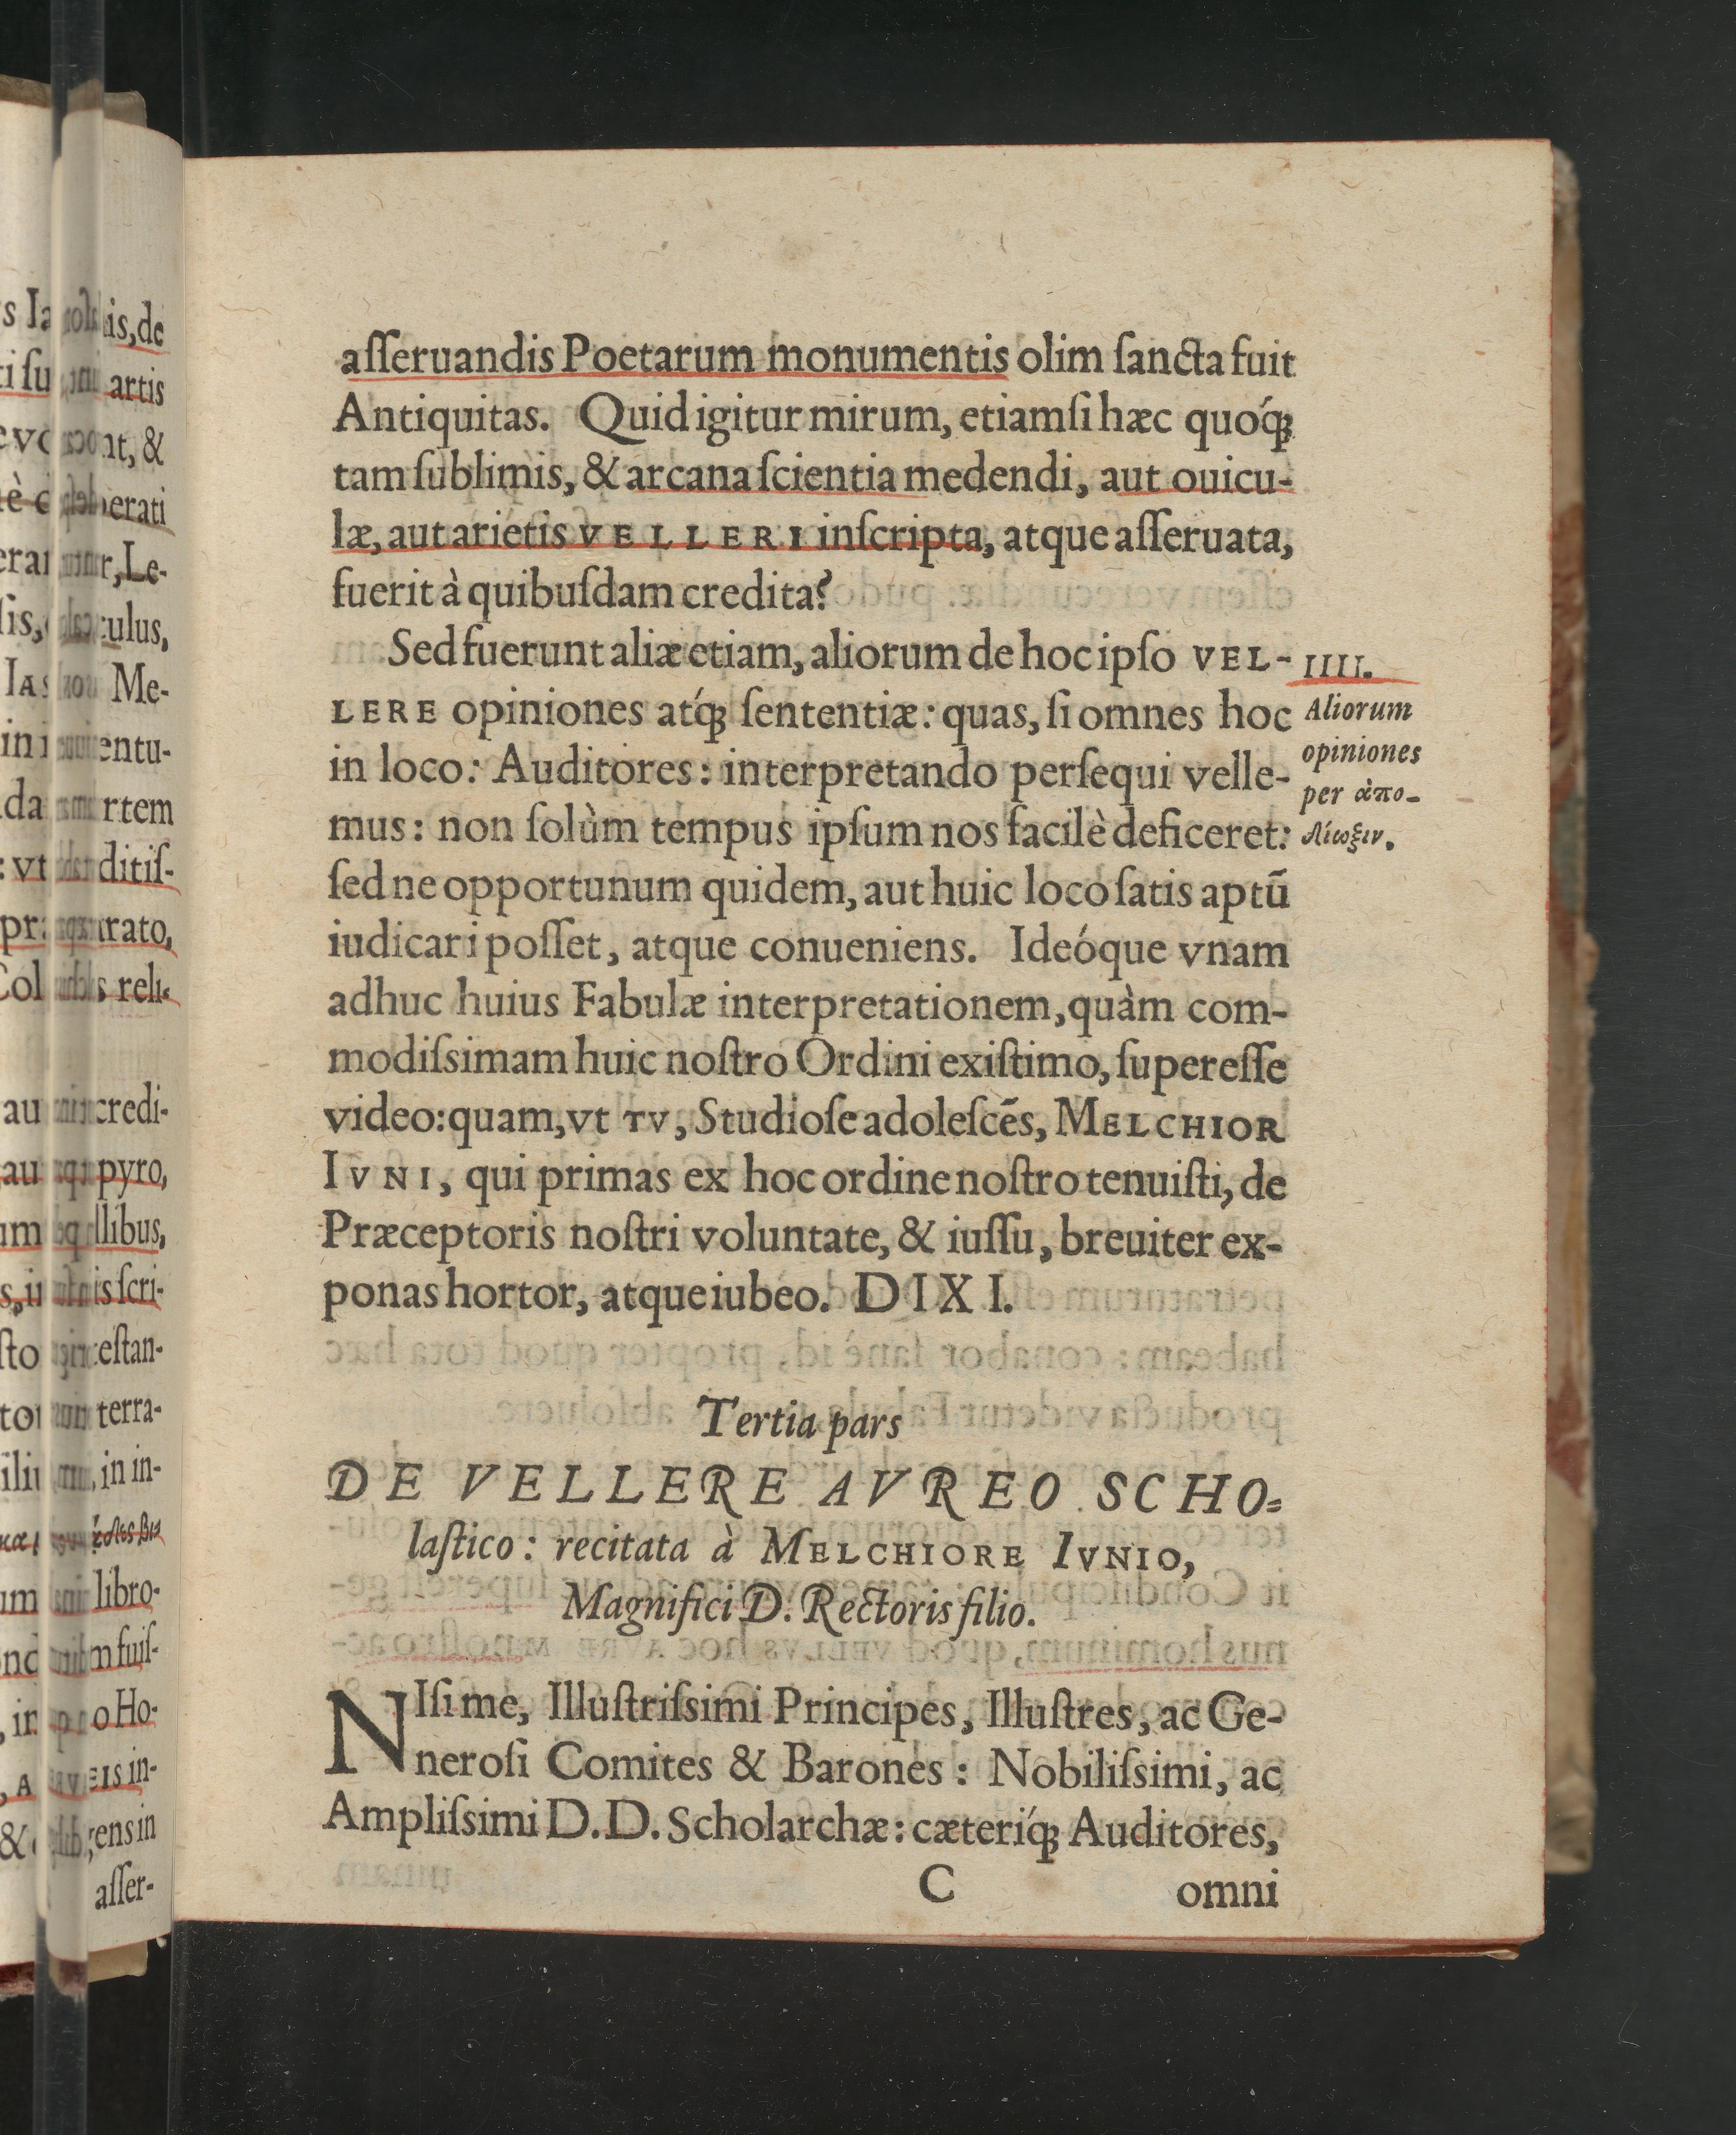 aſſeruandis Poetarum monumentis olim ſancta fuit
Antiquitas. Quid igitur mirum, etiamſi hæc quoq́;
tam ſublimis, & arcana ſcientia medendi, aut ouicu-
læ, aut arietis VELLERI inſcripta, atque aſſeruata,
fuerit à quibuſdam credita?
Sed fuerunt aliæ etiam, aliorum de hoc ipſo VEL-
LERE opiniones atq́; ſententiæ: quas, ſi omnes hoc
in loco: Auditores: interpretando perſequi velle-
mus: non ſolùm tempus ipſum nos facilè deficeret:
ſed ne opportunum quidem, aut huic loco ſatis aptū
iudicari poſſet, atque conueniens. Ideóque vnam
adhuc huius Fabulæ interpretationem, quàm com-
modiſsimam huic noſtro Ordini exiſtimo, ſupereſſe
video: quam, vt TV, Studioſe adoleſcēs, MELCHIOR
IVNI, qui primas ex hoc ordine noſtro tenuiſti, de
Præceptoris noſtri voluntate, & iuſſu, breuiter ex-
ponas hortor, atque iubeo. DIXI.
IIII.
Aliorum
opiniones
per ἀπο-
δίωξιν.
Tertia pars
DE VELLERE AVREO SCHO-
laſtico: recitata à MELCHIORE IVNIO,
Magnifici D. Rectoris filio.
NIſi me, Illuſtriſsimi Principes, Illuſtres, ac Ge-
neroſi Comites & Barones: Nobiliſsimi, ac
Ampliſsimi D.D. Scholarchæ: cæteriq́; Auditores,
C omni